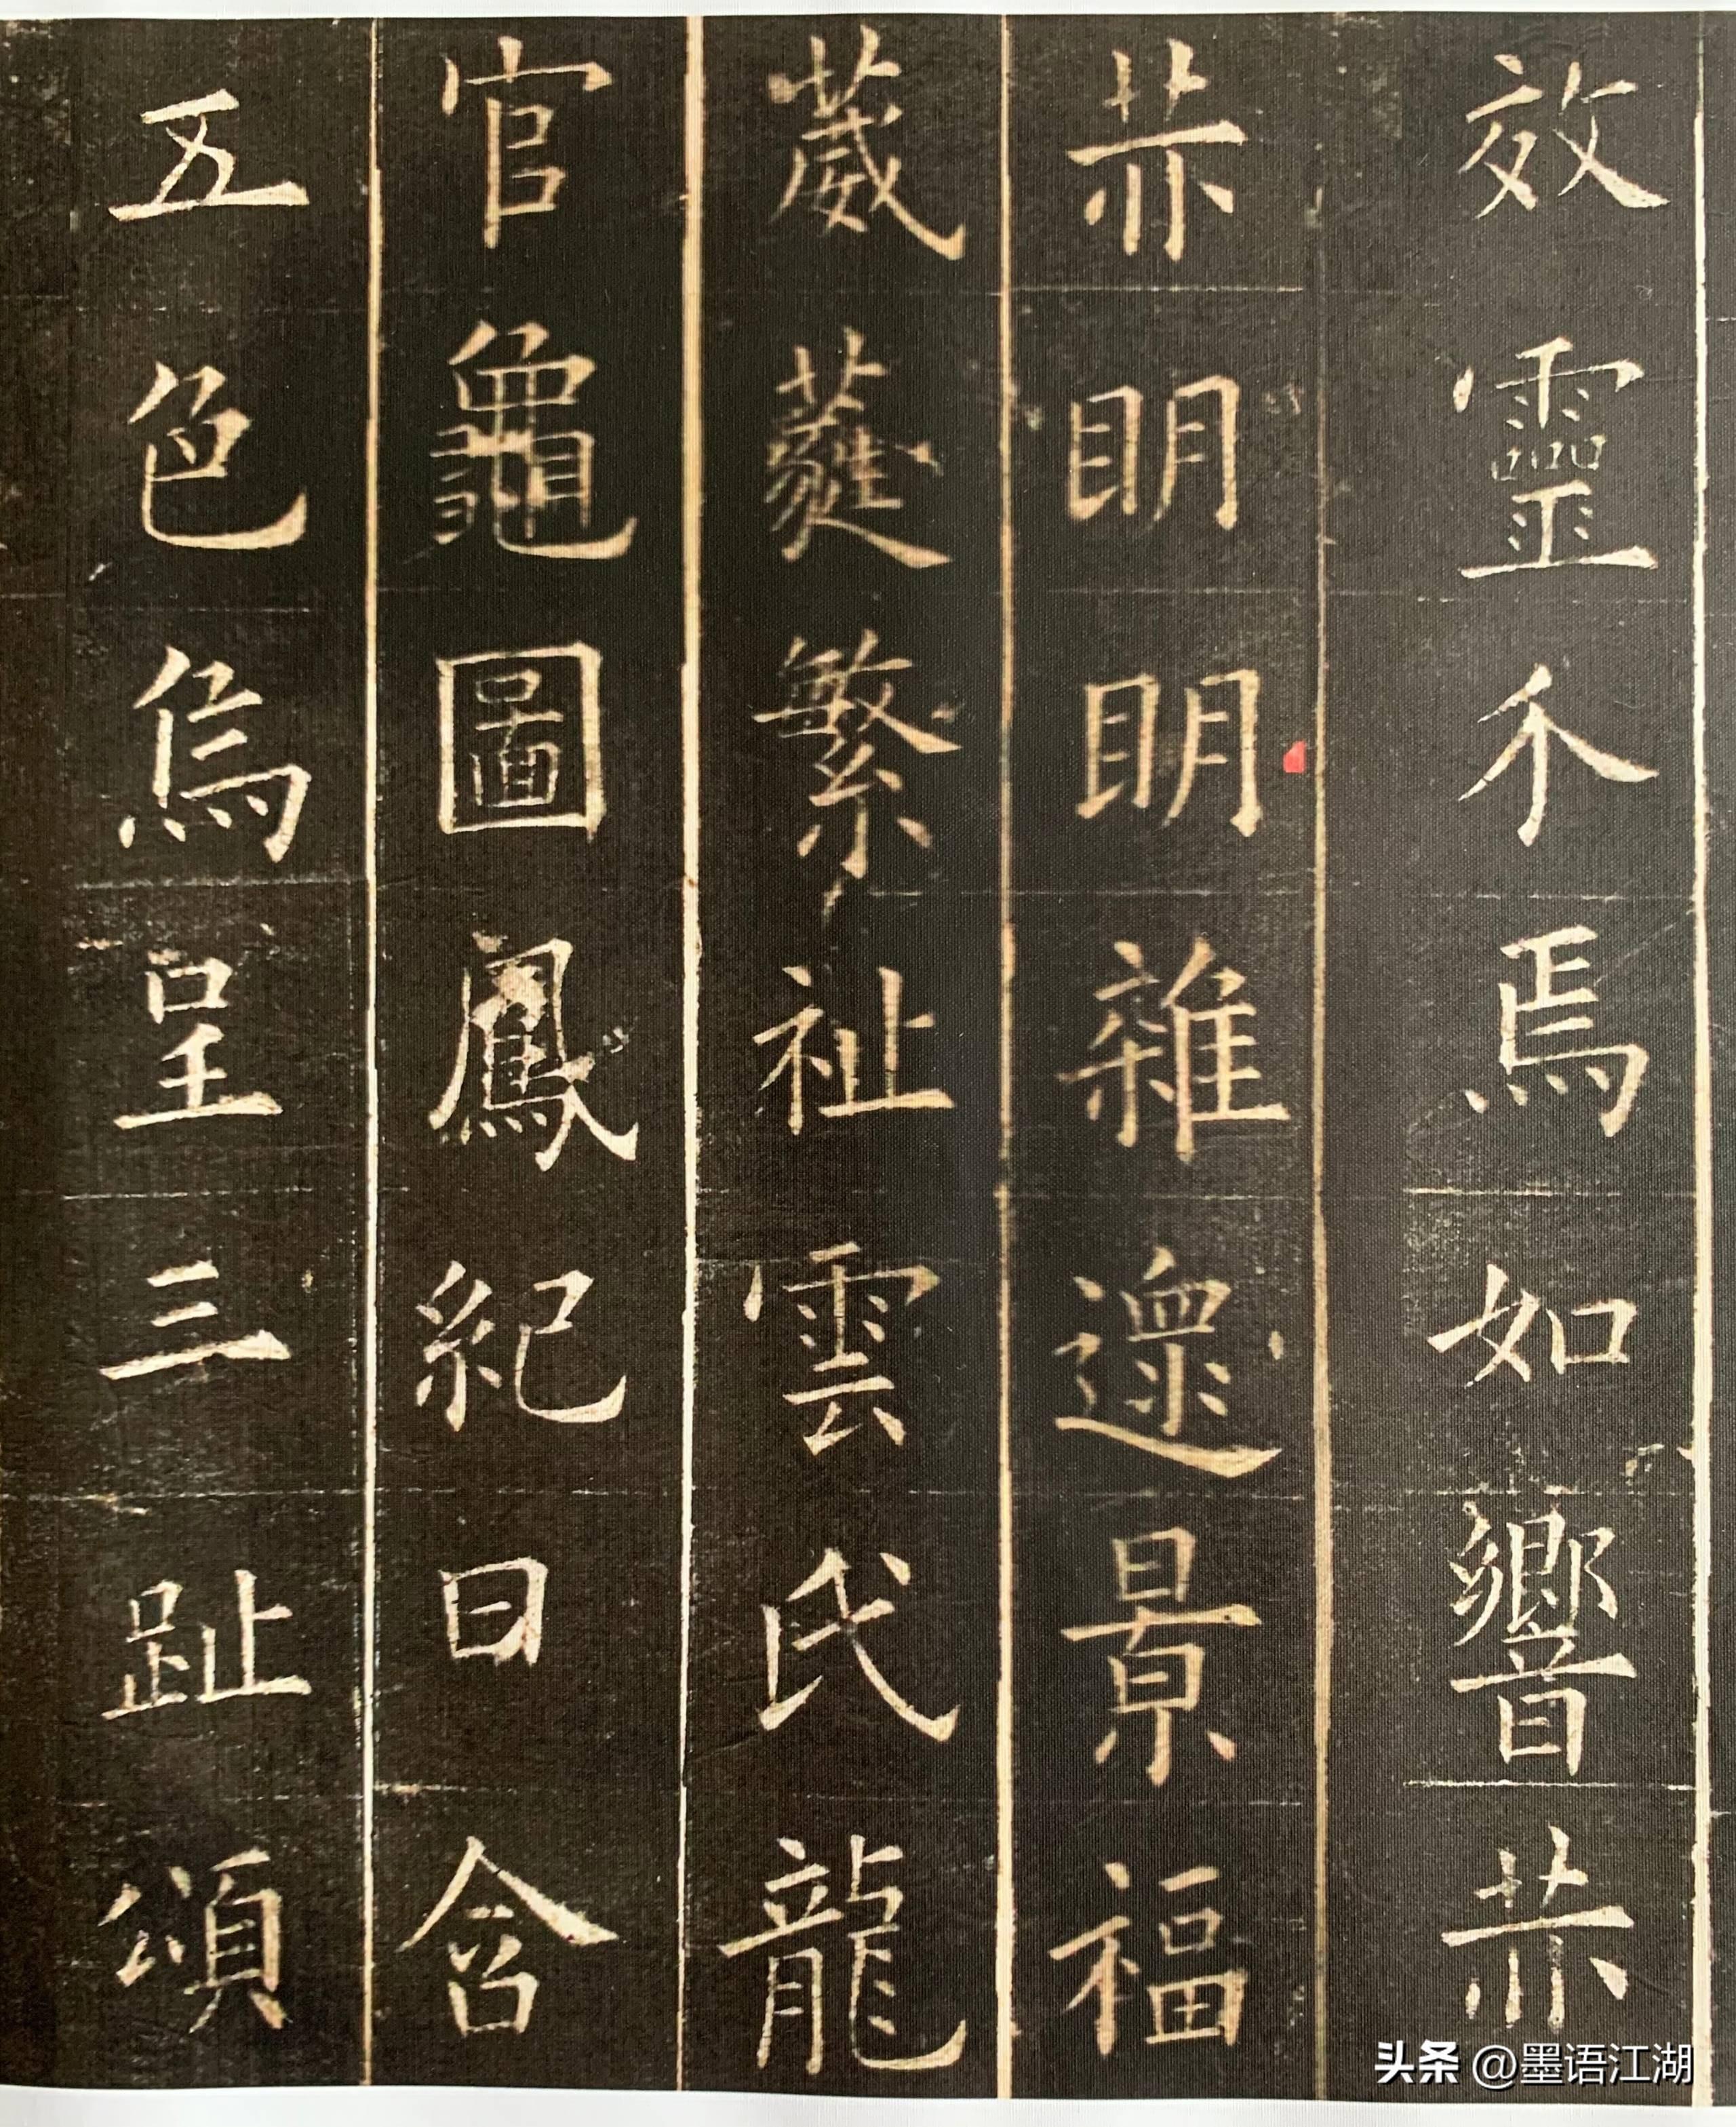 效靈尒焉如響赫
赫明明雜遝景福
葳蕤繁祉雲氏龍
官龜圖鳳紀日含
五色烏呈三趾頌
头条 @墨语江湖